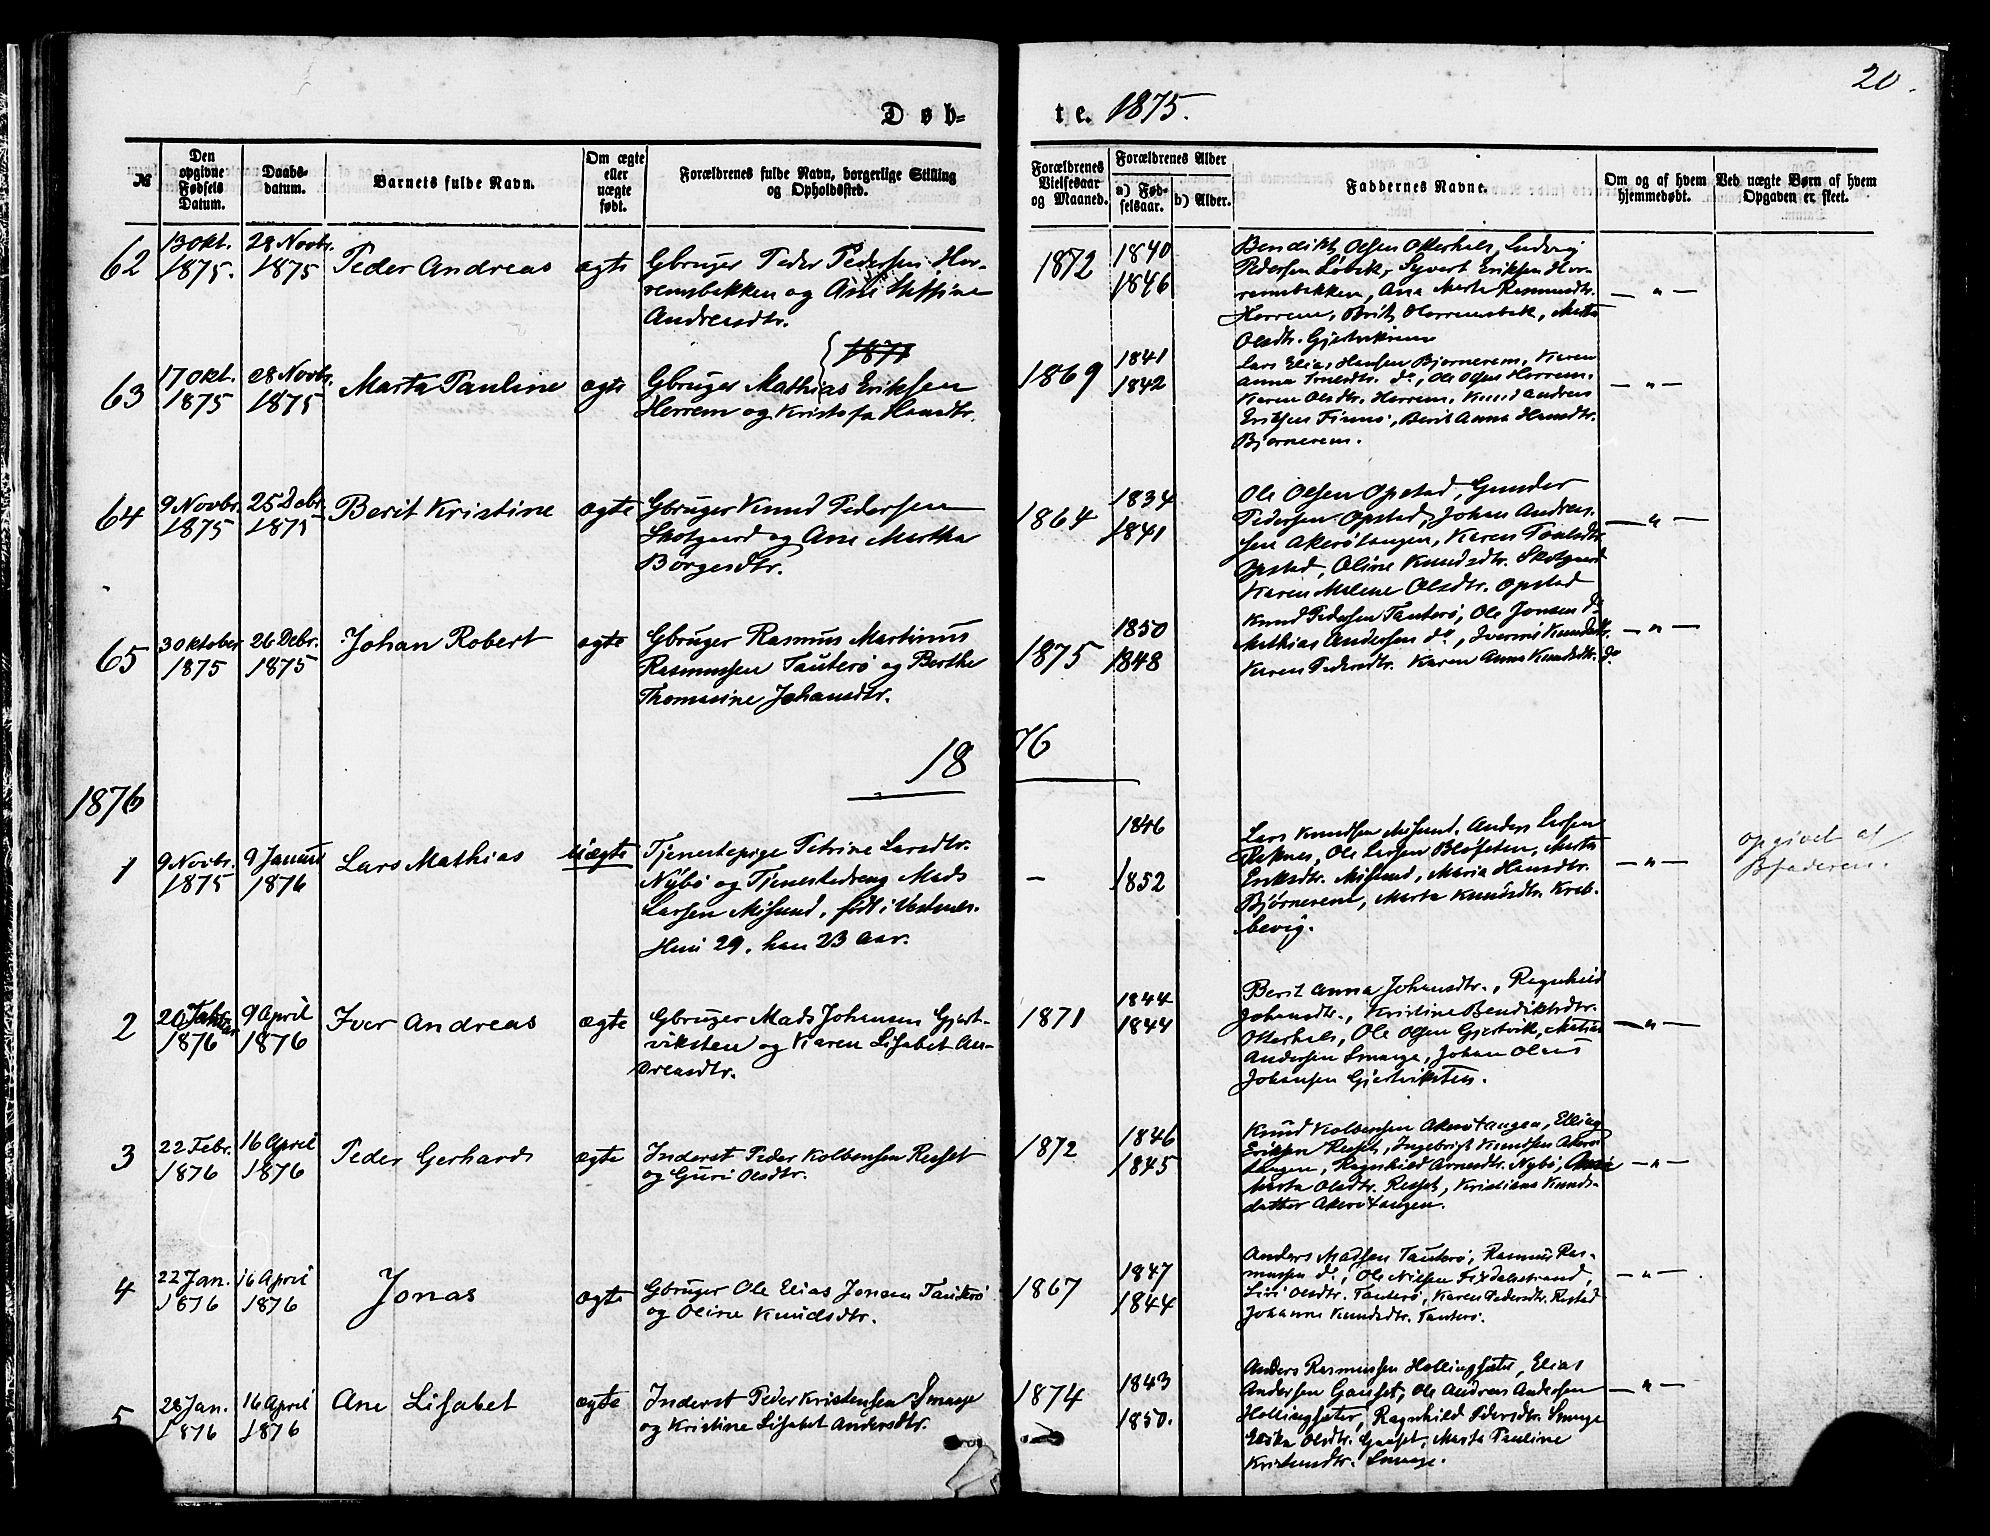 20.
Døb-
te. 1875.
№
Den opgivne Fødsels Datum.
Daabs-datum.
Barnets fulde Navn.
Om ægte eller uægte født.
Forældrenes fulde Navn, borgerlige Stilling og Opholdssted.
Forældrenes Vielsesaar og Maaned.
Forældrenes Alder
a) Fød-selsaar.
b) Alder.
Faddernes Navne.
Om og af hvem hjemmedøbt.
Ved uægte Børn af hvem Opgaven er skeet.
62
13 Okt. 1875.
28 Novbr. 1875
Peder Andreas
ægte
Gbruger Peder Pedersen Her-
remsbakken og Ane
Andreasdtr.
1872
1840
1846
Bendikt Olsen Otterhals, Ludvig
Pedersen Løvik, Syvert Eriksen Her-
remsbakken, Ana Marta Rasmusdtr.
Herrem, Brit Herremsbak, Marta
Olsdtr. Gjertviksten
— " —
63
17 Okt. 1875
28 Novbr. 1875
Marta Pauline
ægte
1871
Gbruger Mathias Eriksen
Herrem og Kristofa Hansdtr.
1869
1841
1842
Lars Elias Hansen Bjørnerem, Karen
Anna do, Ole Olsen Herrem,
Karen Olsdtr. Herrem, Knud Andreas
Eriksen Finnø, Berit Anna Hansdtr.
Bjørnerem.
— " —
64
9 Novbr. 1875
25 Debr. 1875
Berit Kristine
ægte
Gbruger Knud Pedersen
Skotgaard og Ane Martha
Børgesdtr.
1864
1834
1841
Ole Olsen Opstad, Gunder
Pedersen Opstad, Johan Andrea-
sen Akerøtangen, Karen Paulsdtr.
Opstad, Oline Knudsdtr. Skotgaard
Karen Malene Olsdtr. Opstad
— " —
65
30 Oktober 1875
26 Debr. 1875
Johan Robert
ægte
Gbruger Rasmus Martinus
Rasmussen Tauterø og Berthe
Thomasine Johansdtr.
1875
1850
1848
Knud Pedersen Tauterø, Ole Jonsen do
Mathias Andersen do, Knudsdtr.
Karen Pedersdtr. Karen Anna Knudsdtr. do
— " —
1876
1876
1
9 Novbr. 1875
9 Januar 1876
Lars Mathias
uægte
Tjenestepige Petrine Larsdtr.
Nybø og Tjenestedreng Mads
Larsen Misund, født i Vestnes.
Hun 29, han 23 Aar.
—
1846
1852
Lars Knudsen Misund, Anders Larsen
Reknes, Ole Larsen Bløseten, Marta
Eriksdtr. Misund, Maria Hansdtr.
Bjørnerem, Marta Knudsdtr. Krab-
bevig.
— " —
Opgivet af
Bfaderen.
2
20 Januar 1876
9 April 1876
Iver Andreas
ægte
Gbruger Mads Johansen Gjert-
viksten og Karen Lisabet An-
dreasdtr.
1871
1844
1844
Berit Anna Johansdtr., Ragnhild
Johansdtr., Kristine Bendiktsdtr.
Otterhals, Ole Olsen Gjertvik, Matias
Andersen Smaage, Johan Olaus
Johansen Gjertviksten.
— " —
3
22 Febr. 1876
16 April 1876
Peder Gerhard
ægte
Inderst Peder Kolbensen Resset
og Guri Olsdtr.
1872
1846
1845
Knud Kolbensen Akerøtangen, Elling
Eriksen Resset, Ingebrigt Knudsen Akerø-
tangen, Ragnhild Arnesdtr. Nybø, Anne
Marta Olsdtr. Resset, Kristiana Knuds-
datter Akerøtangen.
— " —
4
22 Jan. 1876
16 April 1876
Jonas
ægte
Gbruger Ole Elias Jonsen Tauterø
og Oline Knudsdtr.
1867
1847
1844
Anders Madsen Tauterø, Rasmus Ras-
mussen do, Ole Nielsen Fixdalsstrand,
Livi Olsdtr. Tauterø, Karen Pedersdtr. Restad
Johanne Knudsdtr. Tauterø.
— " —
5
28 Jan. 1876
16 April 1876
Ane Lisabet
ægte
Inderst Peder Kristensen Smaage
og Kristine Lisabet Andersdtr.
1874
1843
1850.
Anders Rasmussen Hollingsæter, Elias
Andersen Gauset, Ole Andreas Andersen
Hollingsæter, Ragnhild Pedersdtr. Smaage
Olsdtr. Gauset, Marta Pauline
Kristensdtr. Smaage.
— " —